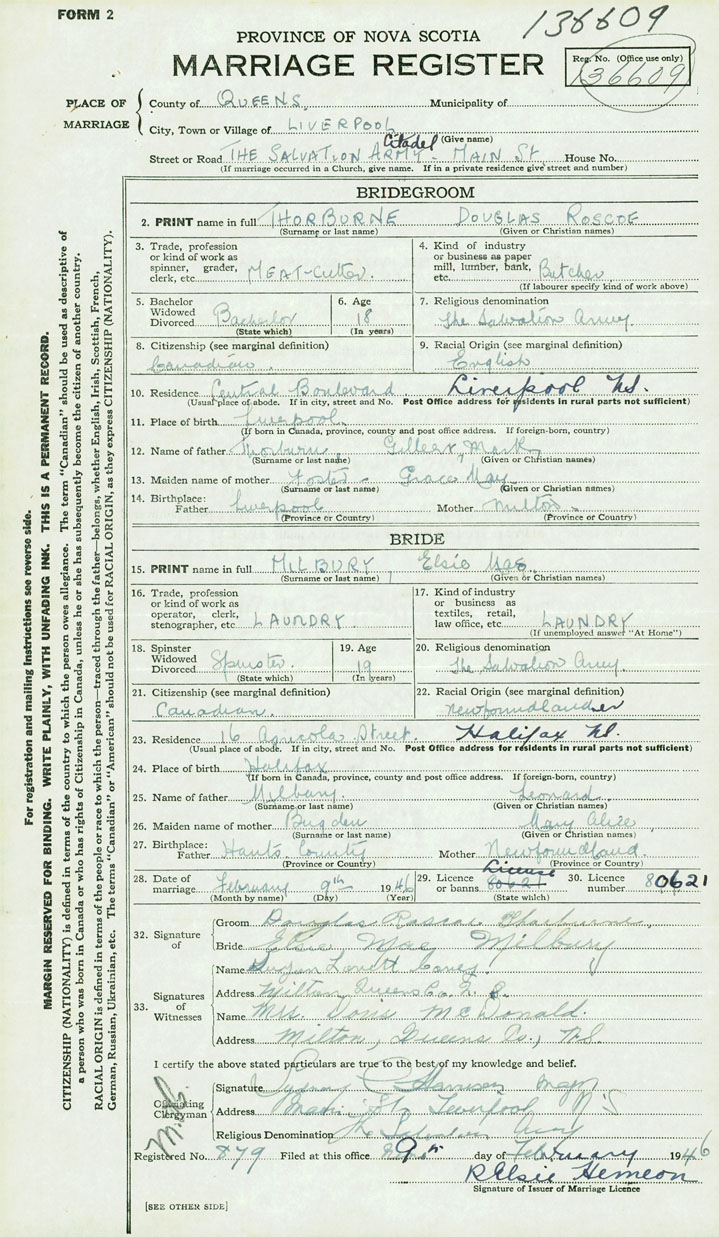 FORM 2
136609
PROVINCE OF NOVA SCOTIA
MARRIAGE REGISTER
Reg. No. (Office use only)
136609
PLACE OF MARRIAGE
County of QUEENS Municipality of
City, Town or Village of LIVERPOOL
(Give name)
Street or Road THE SALVATION ARMY Citadel - MAIN St. House No.
(If marriage occurred in a Church, give name. If in a private residence give street and number)
BRIDEGROOM
2. PRINT name in full THORBURNE DOUGLAS ROSCOE
(Surname or last name) (Given or Christian names)
3. Trade, profession or kind of work as spinner, grader, clerk, etc. MEAT-Cutter.
4. Kind of industry or business as paper mill, lumber, bank, etc. Butcher
(If labourer specify kind of work above)
5. Bachelor Widowed Divorced Bachelor
(State which)
6. Age 18
(In years)
7. Religious denomination
The Salvation Army
8. Citizenship (see marginal definition)
Canadian.
9. Racial Origin (see marginal definition)
English
10. Residence Central Boulevard Liverpool N.S.
(Usual place of abode. If in city, street and No. Post Office address for residents in rural parts not sufficient)
11. Place of birth Liverpool
(If born in Canada, province, county and post office address. If foreign-born, country)
12. Name of father Thorburne Mark
(Surname or last name) (Given or Christian names)
13. Maiden name of mother Foster Grace May
(Surname or last name) (Given or Christian names)
14. Birthplace: Father Liverpool Mother Milton
(Province or Country) (Province or Country)
BRIDE
15. PRINT name in full MILBURY Elsie Mae
(Surname or last name) (Given or Christian names)
16. Trade, profession or kind of work as operator, clerk, stenographer, etc. LAUNDRY
17. Kind of industry or business as textiles, retail, law office, etc. LAUNDRY
(If unemployed answer "At Home")
18. Spinster Widowed Divorced Spinster.
(State which)
19. Age 19
(In years)
20. Religious denomination
The Salvation Army
21. Citizenship (see marginal definition)
Canadian.
22. Racial Origin (see marginal definition)
Newfoundlander
23. Residence 16 Agricola Street. Halifax N.S.
(Usual place of abode. If in city, street and No. Post Office address for residents in rural parts not sufficient)
24. Place of birth Halifax
(If born in Canada, province, county and post office address. If foreign-born, country)
25. Name of father Milbury Leonard
(Surname or last name) (Given or Christian names)
26. Maiden name of mother Bugden Mary Alice
(Surname or last name) (Given or Christian names)
27. Birthplace: Father Hants County Mother Newfoundland.
(Province or Country) (Province or Country)
28. Date of marriage February 9th 1946
(Month by name) (Day) (Year)
29. Licence or banns License
(State which)
30. Licence number 80621
32. Signature of
Groom Douglas Roscoe Thorburne
Bride Elsie Mae Milbury
33. Signatures of Witnesses
Name
Address Milton, Queens Co. N.S.
Name Mrs. Doris McDonald.
Address Milton, Queens Co., N.S.
I certify the above stated particulars are true to the best of my knowledge and belief.
Officiating Clergyman
Signature Sydney C Harrison Major
Address Main St. Liverpool N.S.
Religious Denomination The Salvation Army
Registered No. 879 Filed at this office 9th day of February 1946
R Elsie Hemeon
Signature of Issuer of Marriage Licence
[SEE OTHER SIDE]
For registration and mailing instructions see reverse side.
MARGIN RESERVED FOR BINDING. WRITE PLAINLY, WITH UNFADING INK. THIS IS A PERMANENT RECORD.
CITIZENSHIP (NATIONALITY) is defined in terms of the country to which the person owes allegiance. The term "Canadian" should be used as descriptive of
a person who was born in Canada or who has rights of Citizenship in Canada, unless he or she has subsequently become the citizen of another country.
RACIAL ORIGIN is defined in terms of the people or race to which the person—traced through the father—belongs, whether English, Irish, Scottish, French,
German, Russian, Ukrainian, etc. The terms "Canadian" or "American" should not be used for RACIAL ORIGIN, as they express CITIZENSHIP (NATIONALITY).